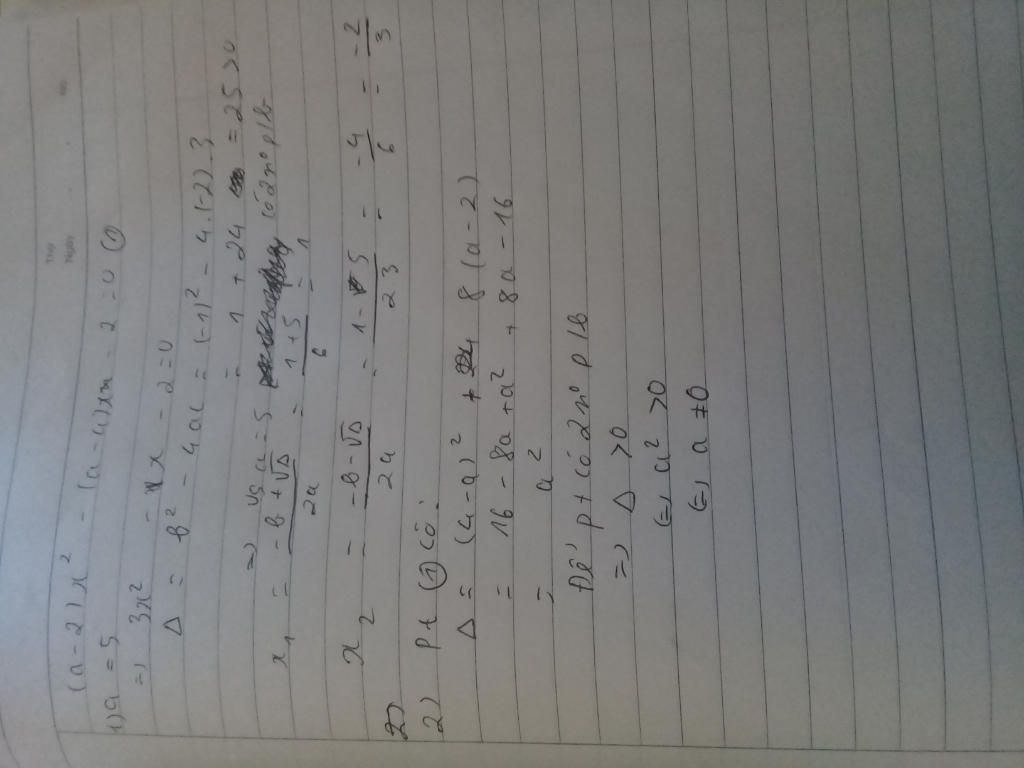 Thứ
Ngày
No.
(a-2)x² - (a-4)x - 2 = 0 ①
1) a = 5
=) 3x² - x - 2 = 0
Δ = b² - 4ac = (-1)² - 4.(-2).3
= 1 + 24 = 25 > 0
=) Vs a = 5 có 2 n° plb
x₁ = -b + √Δ / 2a = 1 + 5 / 6 = 1
x₂ = -b - √Δ / 2a = 1 - 5 / 2 3 = -4 / 6 = -2 / 3
2)
2) Pt ① có:
Δ = (4-a)² + 8 (a-2)
= 16 - 8a + a² + 8a - 16
= a²
Để pt có 2 n° plb
=) Δ > 0
(=) a² > 0
(=) a ≠ 0